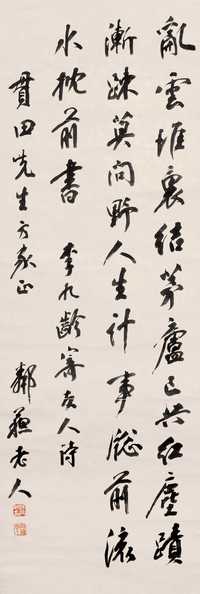 亂雲堆裏結茅廬已共紅塵蹟
漸疎莫問野人生計事牕前流
水枕前書 李九齡寄友人詩
貫田先生方家正 鄰蘓老人